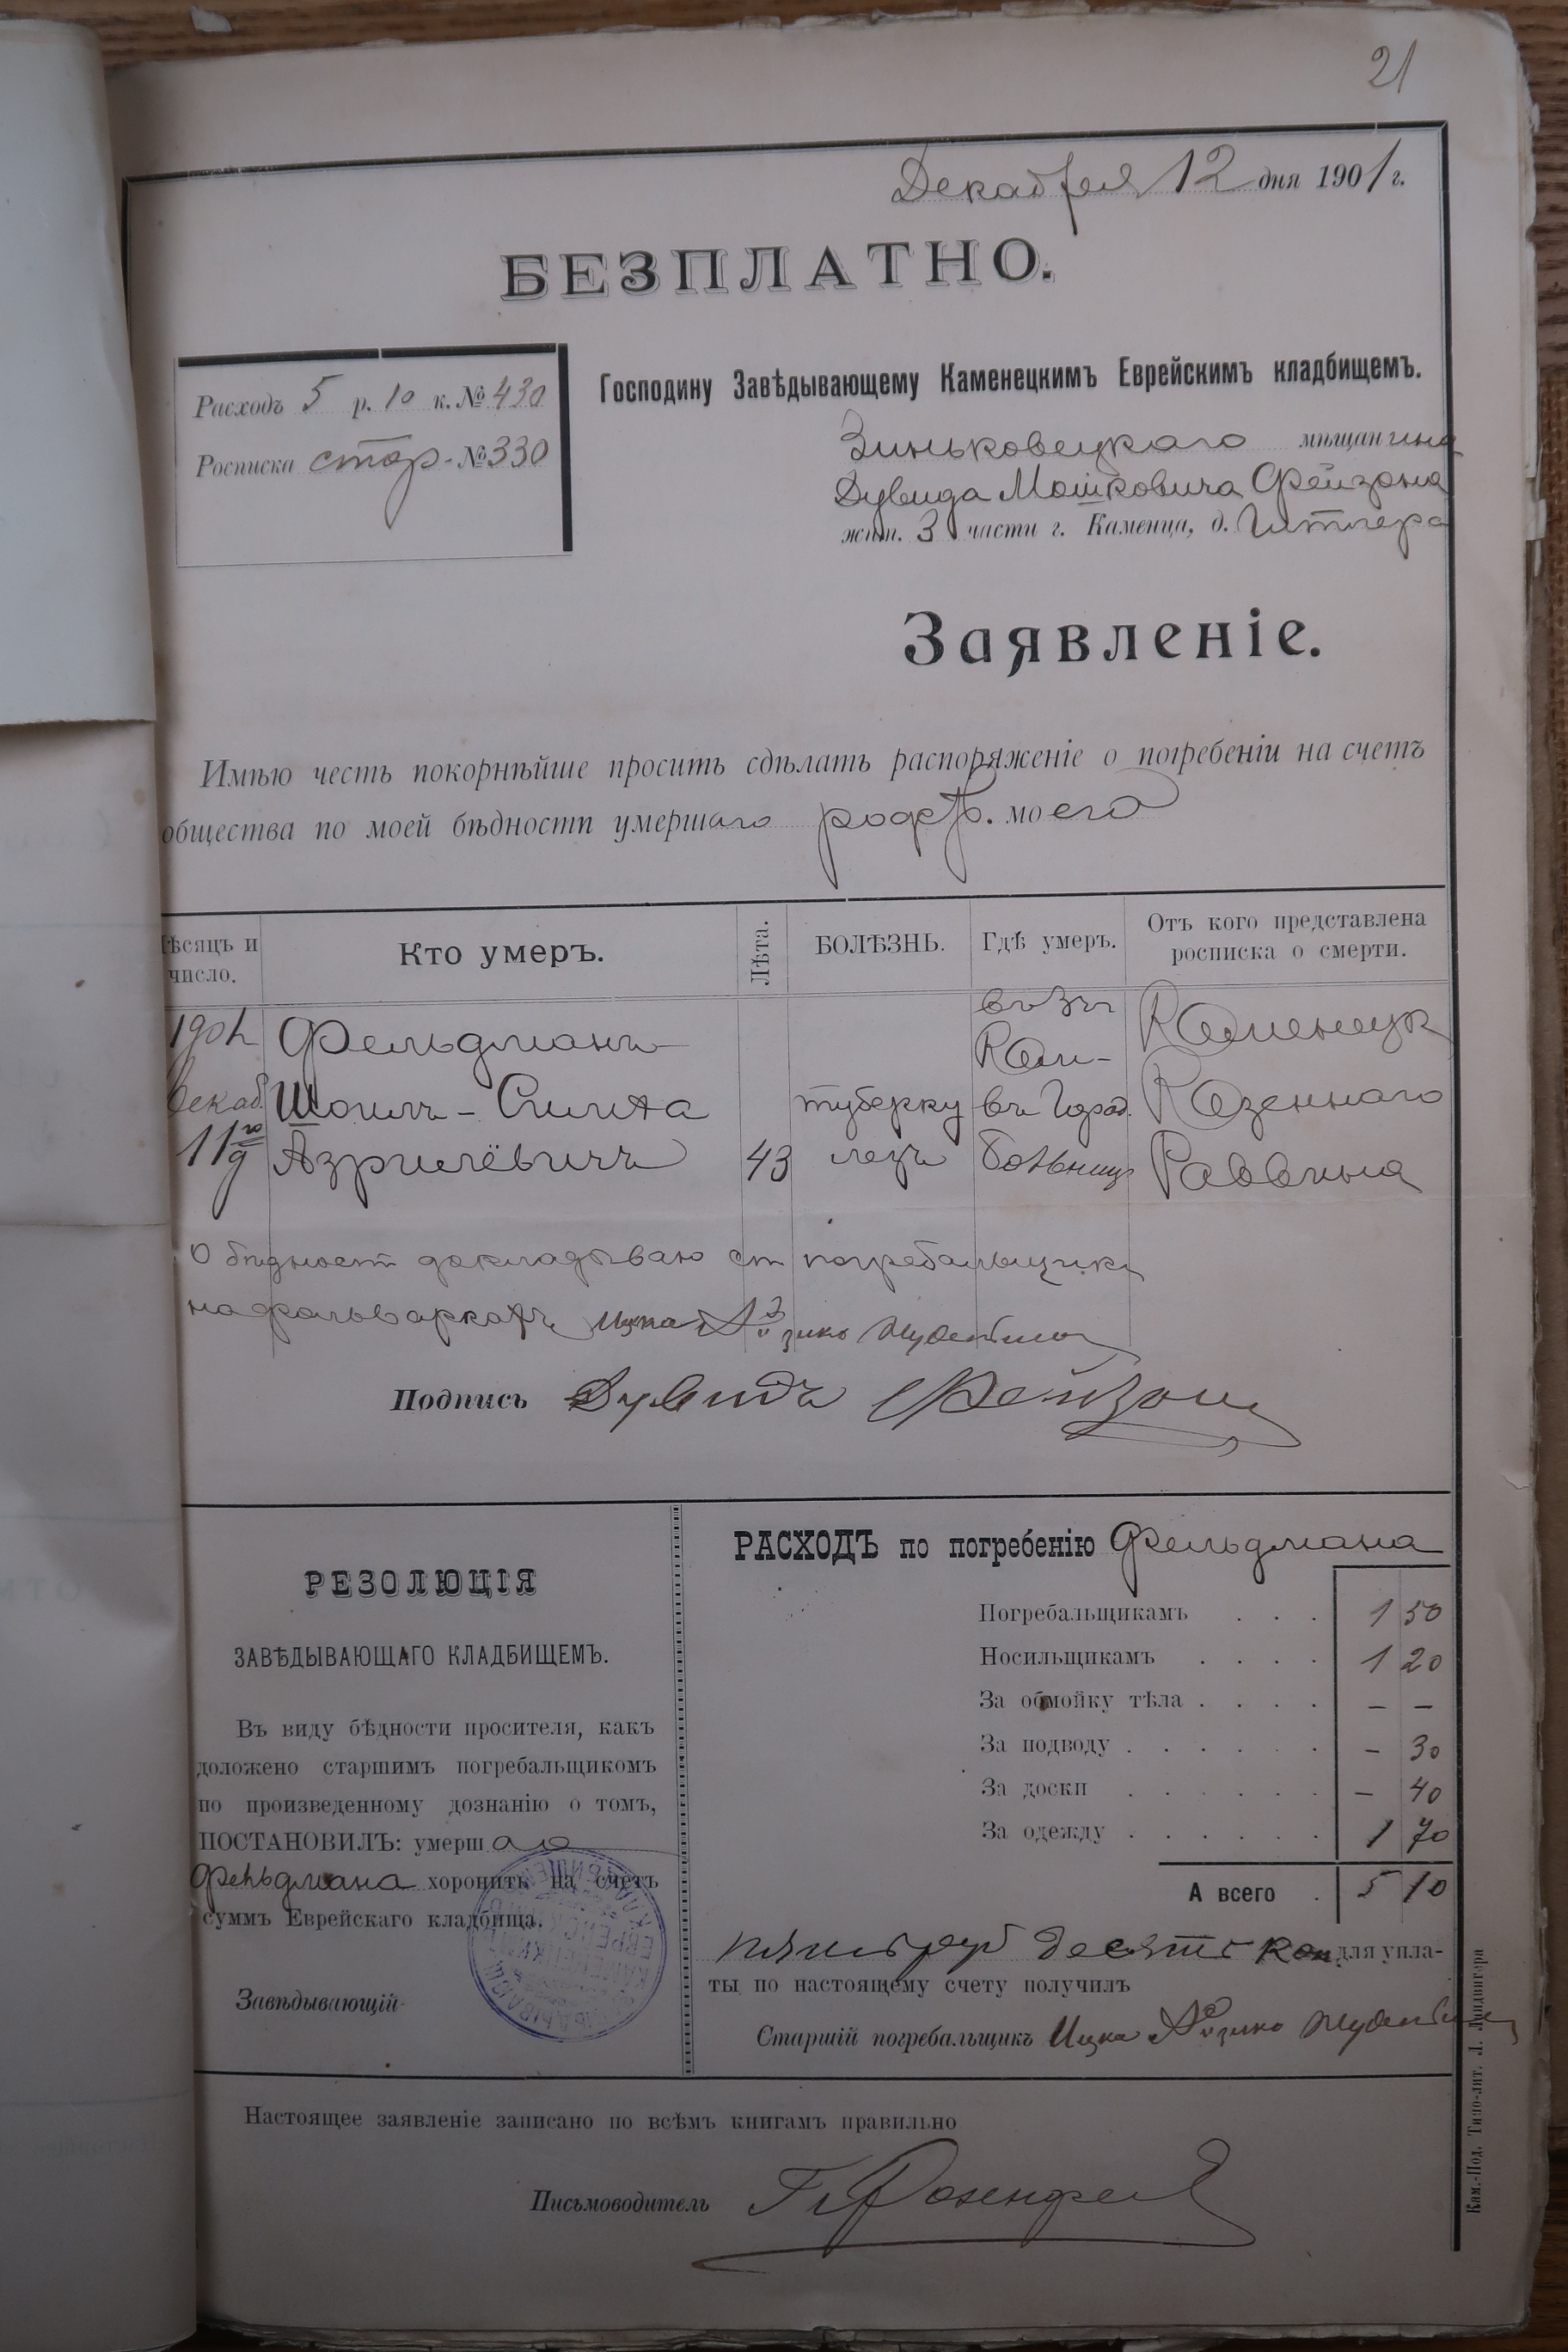 21
Декабря 12 дня 1901 г.
БЕЗПЛАТНО.
Расходъ 5 р. 10 к. № 430
Росписка стар. № 330
Господину Завѣдывающему Каменецкимъ Еврейскимъ кладбищемъ.
Зиньковецкаго мѣщанина
Дувида Мошковича Фейзона
жит. 3 части г. Каменца, д.
Заявленіе.
Имѣю честь покорнѣйше просить сдѣлать распоряженіе о погребеніи на счетъ
общества по моей бѣдности умершаго родств. моего
ѣсяцъ и число.
Кто умеръ.
Лѣта.
БОЛѢЗНЬ.
Гдѣ умеръ.
Отъ кого представлена росписка о смерти.
1901 Декаб. 11го
Фельдманъ
Шоилъ-Симха
Азрилёвичъ
43
туберку
лезъ
Кам-
въ Город.
больниц
Каменецк
Казеннаго
Раввина
О бѣдност докладываю ст погребальщикъ
на фольваркахъ Ицка
Подпись Дувидъ Фейзон
РЕЗОЛЮЦІЯ
ЗАВѢДЫВАЮЩАГО КЛАДБИЩЕМЪ.
Въ виду бѣдности просителя, какъ
доложено старшимъ погребальщикомъ
по произведенному дознанію о томъ,
ПОСТАНОВИЛЪ: умершаго
Фельдмана хоронить на счетъ
суммъ Еврейскаго кладбища.
Завѣдывающій
РАСХОДЪ по погребенію Фельдмана
Погребальщикамъ . . . 1 50
Носильщикамъ . . . . 1 20
За обмойку тѣла . . . . – –
За подводу . . . . . . – 30
За доски . . . . . . – 40
За одежду . . . . . . 1 70
А всего . 5 10
пять руб десять коп. для упла-
ты по настоящему счету получилъ
Старшій погребальщикъ Ицка
Настоящее заявленіе записано по всѣмъ книгамъ правильно
Письмоводитель Розенфел
Кам.-Под. Типо-лит. Л. Ландвигера